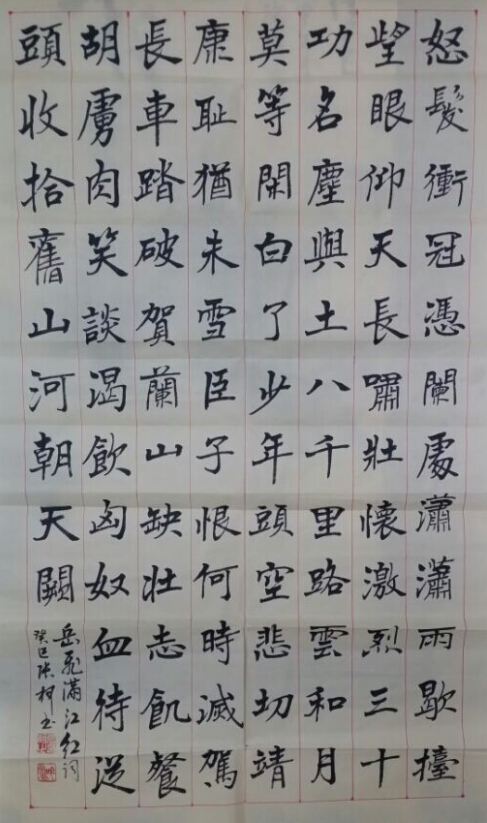 怒髮衝冠憑闌處瀟瀟雨歇擡
望眼仰天長嘯壯懷激烈三十
功名塵與土八千里路雲和月
莫等閑白了少年頭空悲切靖
康耻猶未雪臣子恨何時滅駕
長車踏破賀蘭山缺壯志飢餐
胡虜肉笑談渴飲匈奴血待從
頭收拾舊山河朝天闕
岳飛滿江紅詞
癸巳柯书